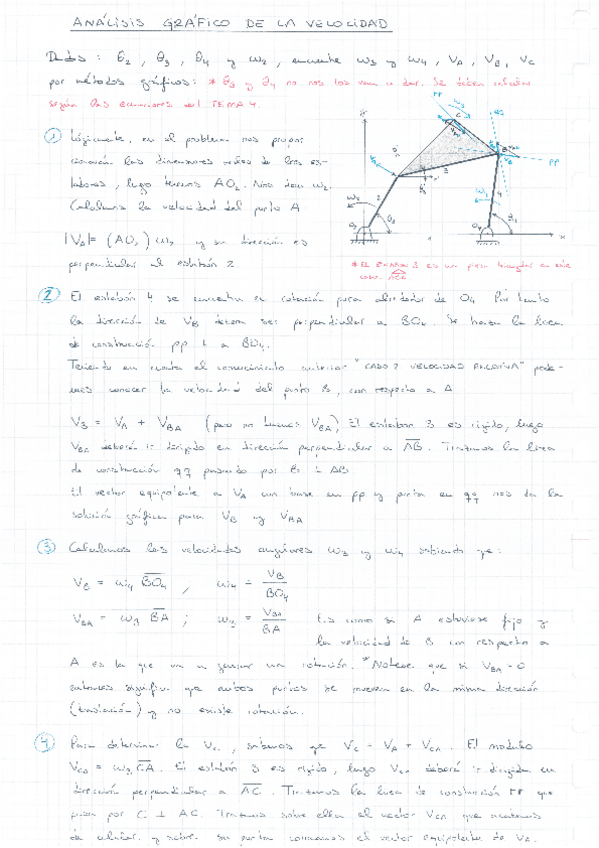 ANÁLISIS GRÁFICO DE LA VELOCIDAD
Datos: θ2, θ3, θ4 y ω2, encuentre ω3 y ω4, VA, VB, VC
por métodos gráficos: * θ3 y θ4 no nos los van a dar. Se deben calcular
según las ecuaciones del TEMA 4.
① Lógicamente, en el problema nos propor
cionarán las dimensiones reales de los es-
labones, luego tenemos AO2. Nos dan ω2.
Calculamos la velocidad del punto A
|VA| = (AO2) ω2 y su dirección es
perpendicular al eslabón 2
* EL ESLABÓN 3 es una pieza triangular en este
caso.
② El eslabón 4 se encuentra en rotación pura alrededor de O4. Por tanto
la dirección de VB deberá ser perpendicular a BO4. Se traza la línea
de construcción pp ⊥ a BO4.
Teniendo en cuenta el conocimiento anterior "CASO 2 VELOCIDAD RELATIVA" pode-
mos conocer la velocidad del punto B, con respecto a A
VB = VA + VBA (pero no tenemos VBA) El eslabón 3 es rígido, luego
VBA deberá ir dirigido en dirección perpendicular a AB. Trazamos la línea
de construcción qq pasando por B ⊥ AB
El vector equipolente a VA con base en pp y punta en qq nos da la
solución gráfica para VB y VBA
③ Calculamos las velocidades angulares ω3 y ω4 sabiendo que:
VB = ω4 BO4 , ω4 = VB / BO4
VBA = ω3 BA ; ω3 = VBA / BA Es como si A estuviese fijo y
la velocidad de B con respecto a
A es la que va a generar una rotación. * Nótese que si VBA = 0
entonces significa que ambos puntos se mueven en la misma dirección
(traslación) y no existe rotación.
④ Para determinar la VC, sabemos que VC = VA + VCA. El módulo
VCA = ω3 CA. El eslabón 3 es rígido, luego VCA deberá ir dirigida en
dirección perpendicular a AC. Trazamos la línea de construcción rr que
pasa por C ⊥ AC. Trazamos sobre ella el vector VCA que acabamos
de calcular y sobre su punta colocamos el vector equipolente de VA.